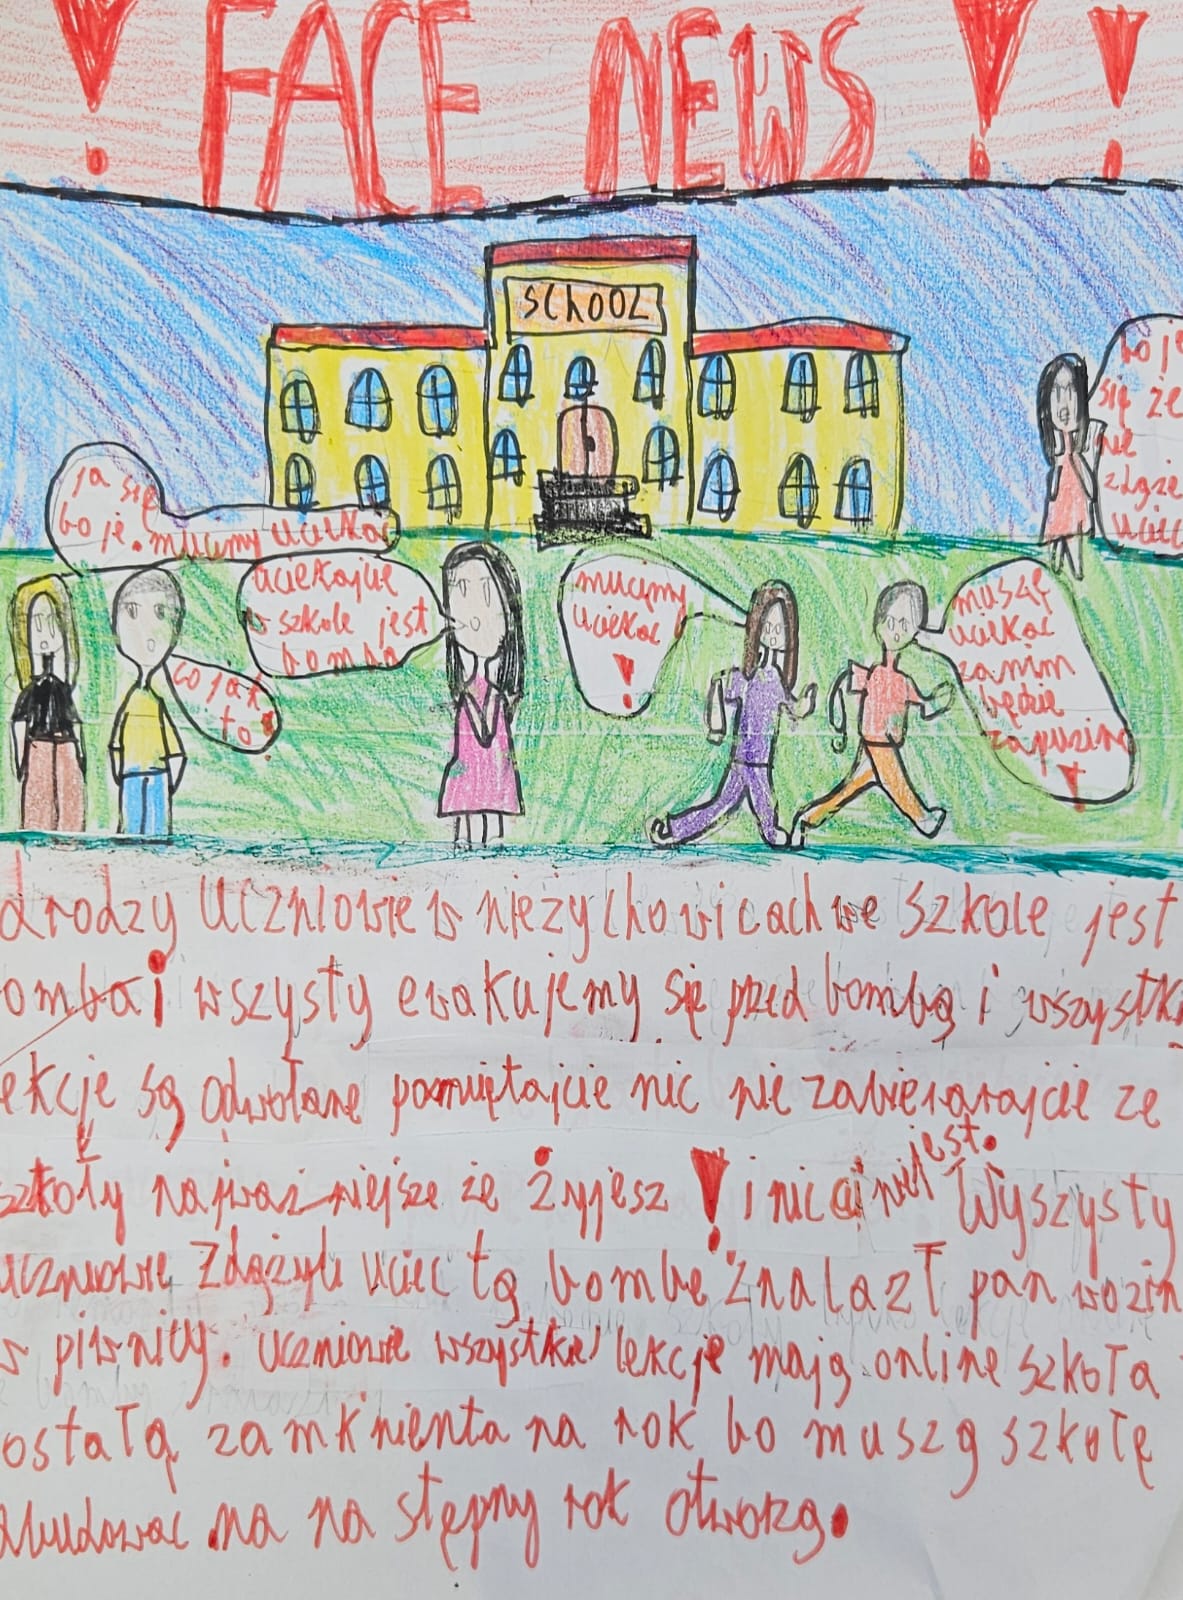 ! FACE NEWS ! !
SCHOOL
boje
się że
nie
zdążę
uciec
ja się
boje. mucimy uciekać
uciekajcie
w szkole jest
bomba
co jak
to !
mucimy
uciekać
!
muszę
uciekać
zanim
będzie
zapuzino
!
drodzy Uczniowie w nieżychowicach we szkole jest
omba i wszysty ewakujemy się przed bombą i wszystki
ekcje są odwołane pamiętajcie nic nie zabierarajcie ze
szkoły najważniejsze że żyjesz ! i nic ci nie jest. Wyszysty
uczniowie zdążyli uciec tą bombę znalazł pan wozin
w piwnicy. uczniowie wszystkie lekcje mają online szkoła
ostałą zamknienta na rok bo muszą szkołę
dbudować na na stępny rok otworzą.